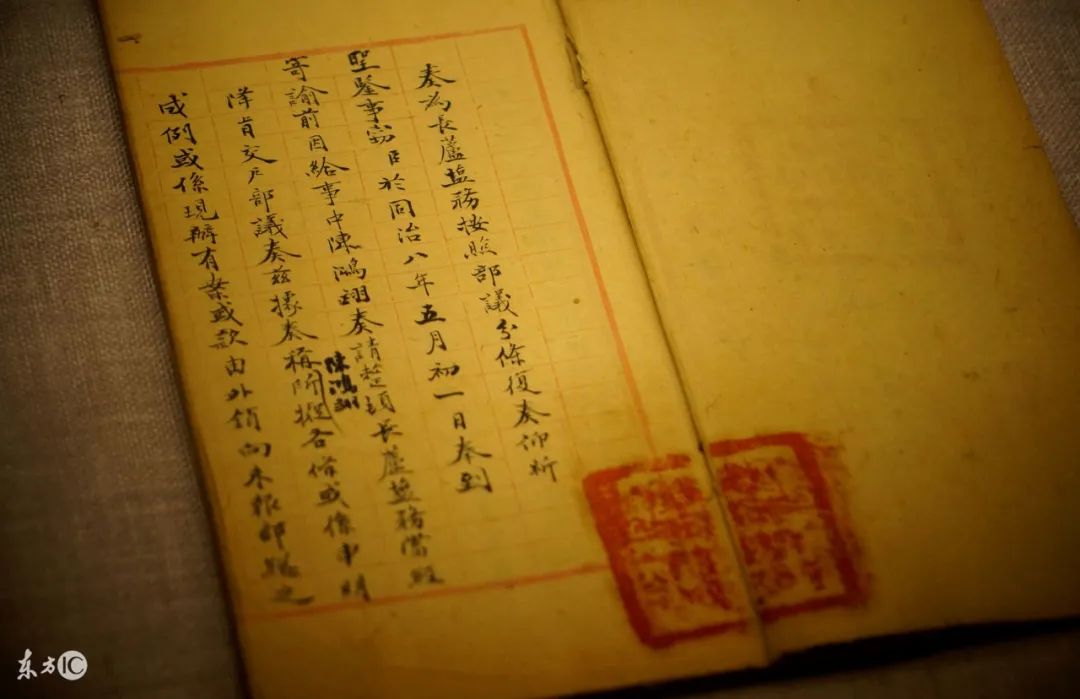 奏為長蘆塩務按照部議分條復奏仰祈
聖鑒事窃臣於同治八年五月初一日奉到
寄諭前因給事中陳鴻翊奏請整頓長蘆塩務當經
降旨交戶部議奏茲據奏稱所擬各條或係申明
陳鴻翊
成例或係現辦有案或款由外銷向未報部之
东方IC